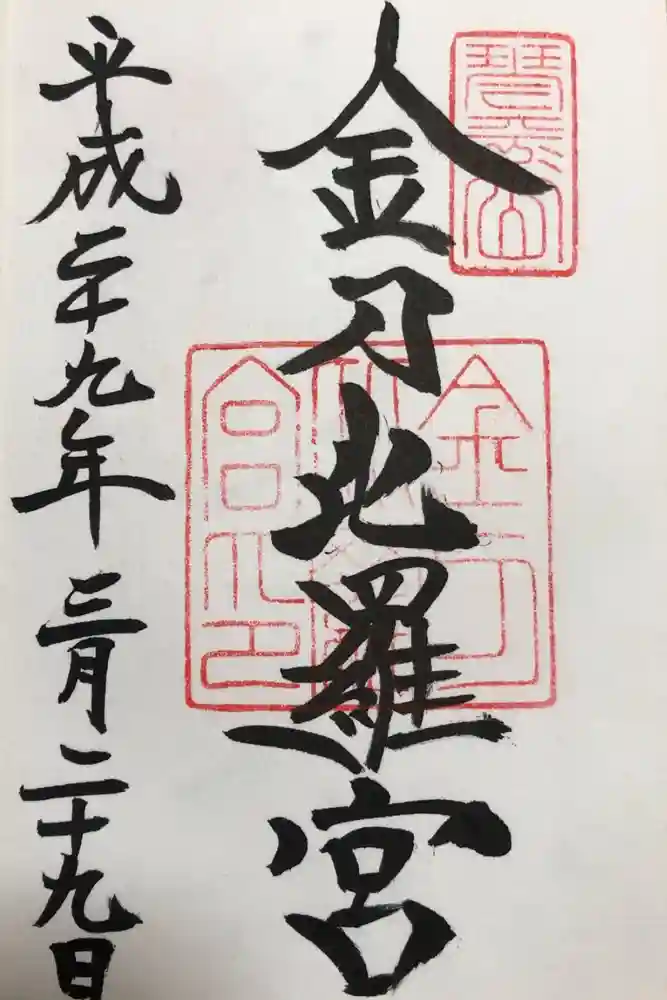 金刀比羅宮
平成二十九年三月二十九日
金刀
比羅
宮之印